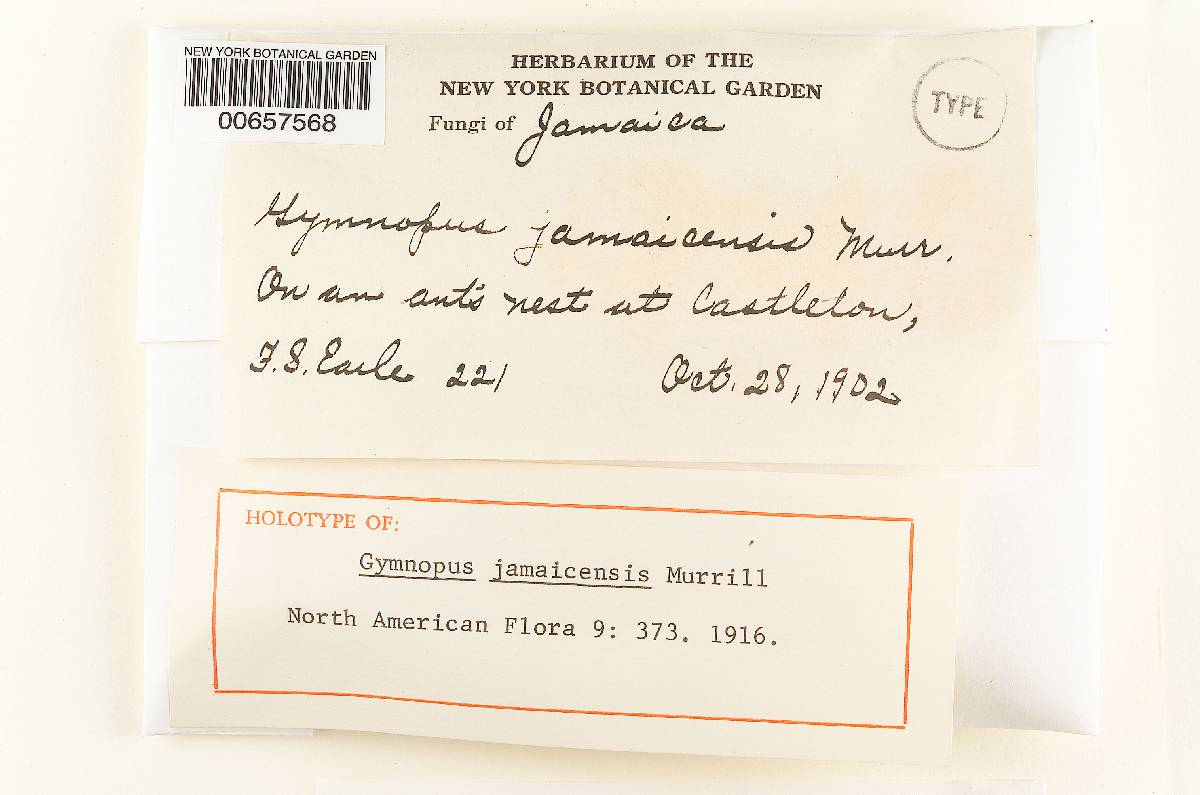 NEW YORK BOTANICAL GARDEN
00657568
HERBARIUM OF THE
NEW YORK BOTANICAL GARDEN
Fungi of Jamaica
TYPE
Gymnopus jamaicensis Murr.
On an ant's nest at Castleton,
F. S. Earle 221 Oct. 28, 1902
HOLOTYPE OF:
Gymnopus jamaicensis Murrill
North American Flora 9: 373. 1916.